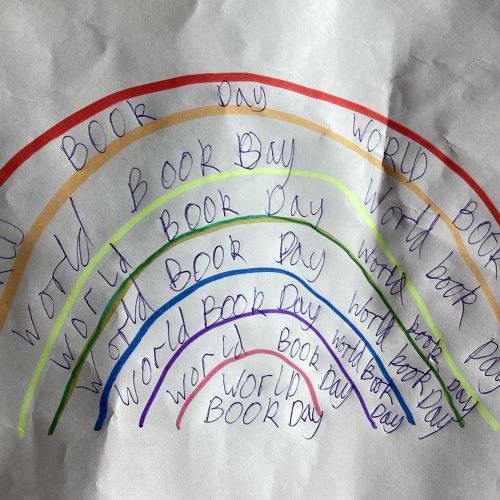 BOOK Day WORLD BOOK
World BOOK Day World book Day
World BOOK Day World book Day
World BOOK Day World BOOK Day
World BOOK Day World BOOK Day
World BOOK Day
WORLD
BOOK Day